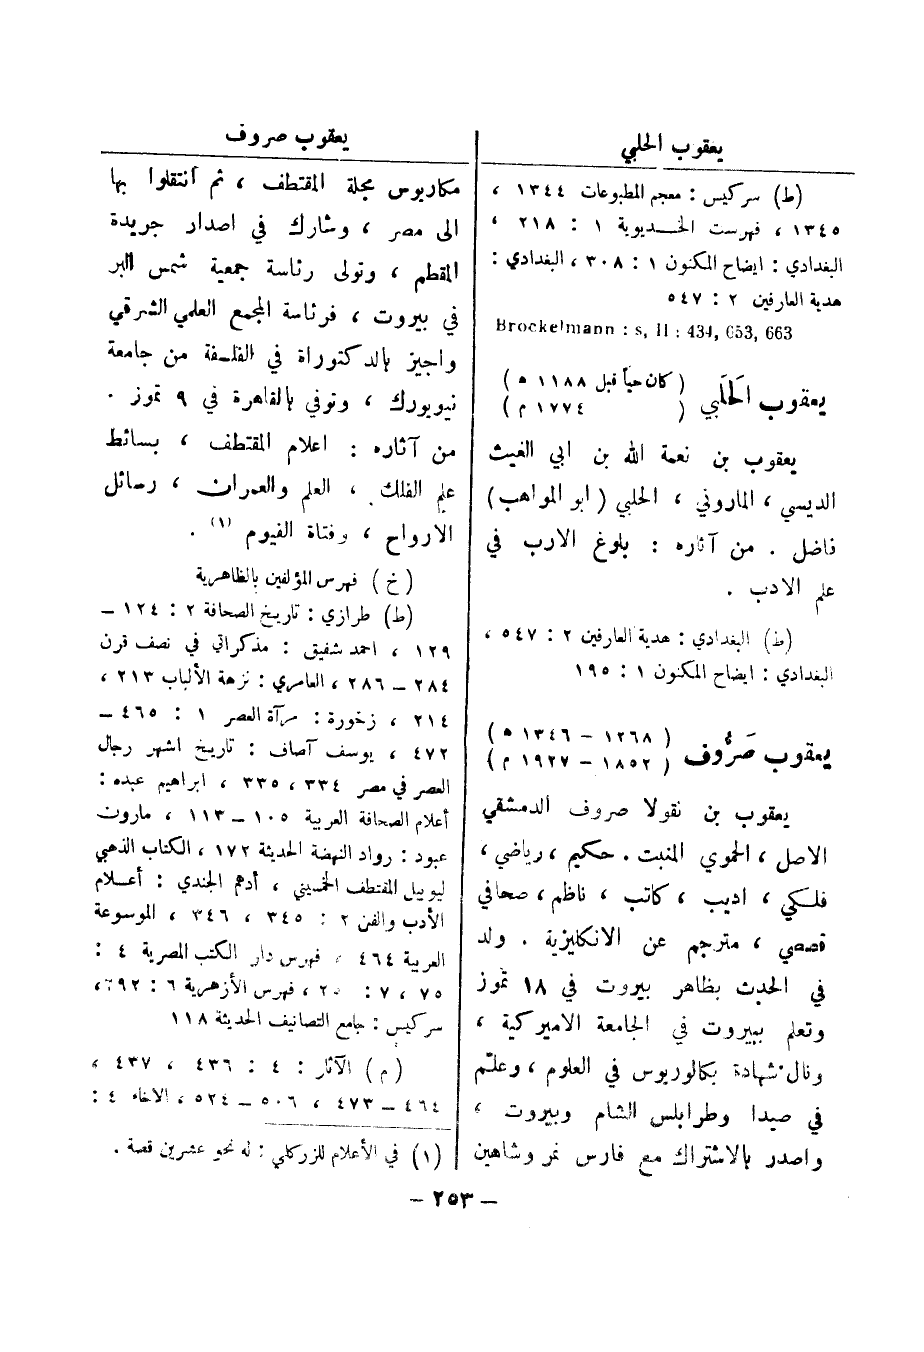 يعقوب الحلبي
(ط) سركيس : معجم المطبوعات ١٣٤٤ ،
١٣٤٥ ، فهرست الخـديوية ١ : ٢١٨ ،
البغدادي : ايضاح المكنون ١ : ٣٠٨ ، البغدادي :
هدية العارفين ٢ : ٥٤٧
Brockelmann : s, II : 434, 653, 663
يعقوب الحَلَبي (كان حياً قبل ١١٨٨ ه)
( ١٧٧٤ م)
يعقوب بن نعمة الله بن ابي الغيث
الدبسي ، الماروني ، الحلبي (ابو المواهب)
فاضل . من آثاره : بلوغ الارب في
علم الادب .
(ط) البغدادي : هدية العارفين ٢ : ٥٤٧ ،
البغدادي : ايضاح المكنون ١ : ١٩٥
يعقوب صَرُّوف (١٢٦٨ – ١٣٤٦ ه)
(١٨٥٢ – ١٩٢٧ م)
يعقوب بن نقولا صروف الدمشقي
الاصل ، الحموي المنبت . حكيم ، رياضي ،
فلكي ، اديب ، كاتب ، ناظم ، صحافي
قصصي ، مترجم عن الانكليزية . ولد
في الحدث بظاهر بيروت في ١٨ تموز
وتعلم ببيروت في الجامعة الاميركية ،
ونال شهادة بكالوريوس في العلوم ، وعلّم
في صيدا وطرابلس الشام وبيروت ،
واصدر بالاشتراك مع فارس نمر وشاهين
يعقوب صروف
مكاريوس مجلة المقتطف ، ثم انتقلوا بها
الى مصر ، وشارك في اصدار جريدة
المقطم ، وتولى رئاسة جمعية شمس البر
في بيروت ، فرئاسة المجمع العلمي الشرقي
واجيز بالدكتوراة في الفلسفة من جامعة
نيويورك ، وتوفي بالقاهرة في ٩ تموز .
من آثاره : اعلام المقتطف ، بسائط
علم الفلك ، العلم والعمران ، رسائل
الارواح ، وفتاة الفيوم (١) .
(خ) فهرس المؤلفين بالظاهرية
(ط) طرازي : تاريخ الصحافة ٢ : ١٢٤ –
١٢٩ ، احمد شفيق : مذكراتي في نصف قرن
٢٨٤ – ٢٨٦ ، العامري : نزهة الألباب ٢١٣ ،
٢١٤ ، زخورة : مرآة العصر ١ : ٤٦٥ –
٤٧٢ ، يوسف آصاف : تاريخ اشهر رجال
العصر في مصر ٣٣٤ ، ٣٣٥ ، ابراهيم عبده :
أعلام الصحافة العربية ١٠٥ – ١١٣ ، مارون
عبود : رواد النهضة الحديثة ١٧٢ ، الكتاب الذهبي
ليوبيل المقتطف الخمسيني ، أدهم الجندي : أعـلام
الأدب والفن ٢ : ٣٤٥ ، ٣٤٦ ، الموسوعة
العربية ٤٦٤ ، فهرس دار الكتب المصرية ٤ :
٧٥ ، ٧ : ، فهرس الأزهرية ٦ :
سركيس : جامع التصانيف الحديثة ١١٨
(م) الآثار : ٤ : ٤٣٦ ، ٤٣٧ ،
٤٦٤ – ٤٧٣ ، ٥٠٦ – ٥٢٤ ، الاخاء ٤ :
(١) في الأعلام للزركلي : له نحو عشرين قصة .
– ٢٥٣ –